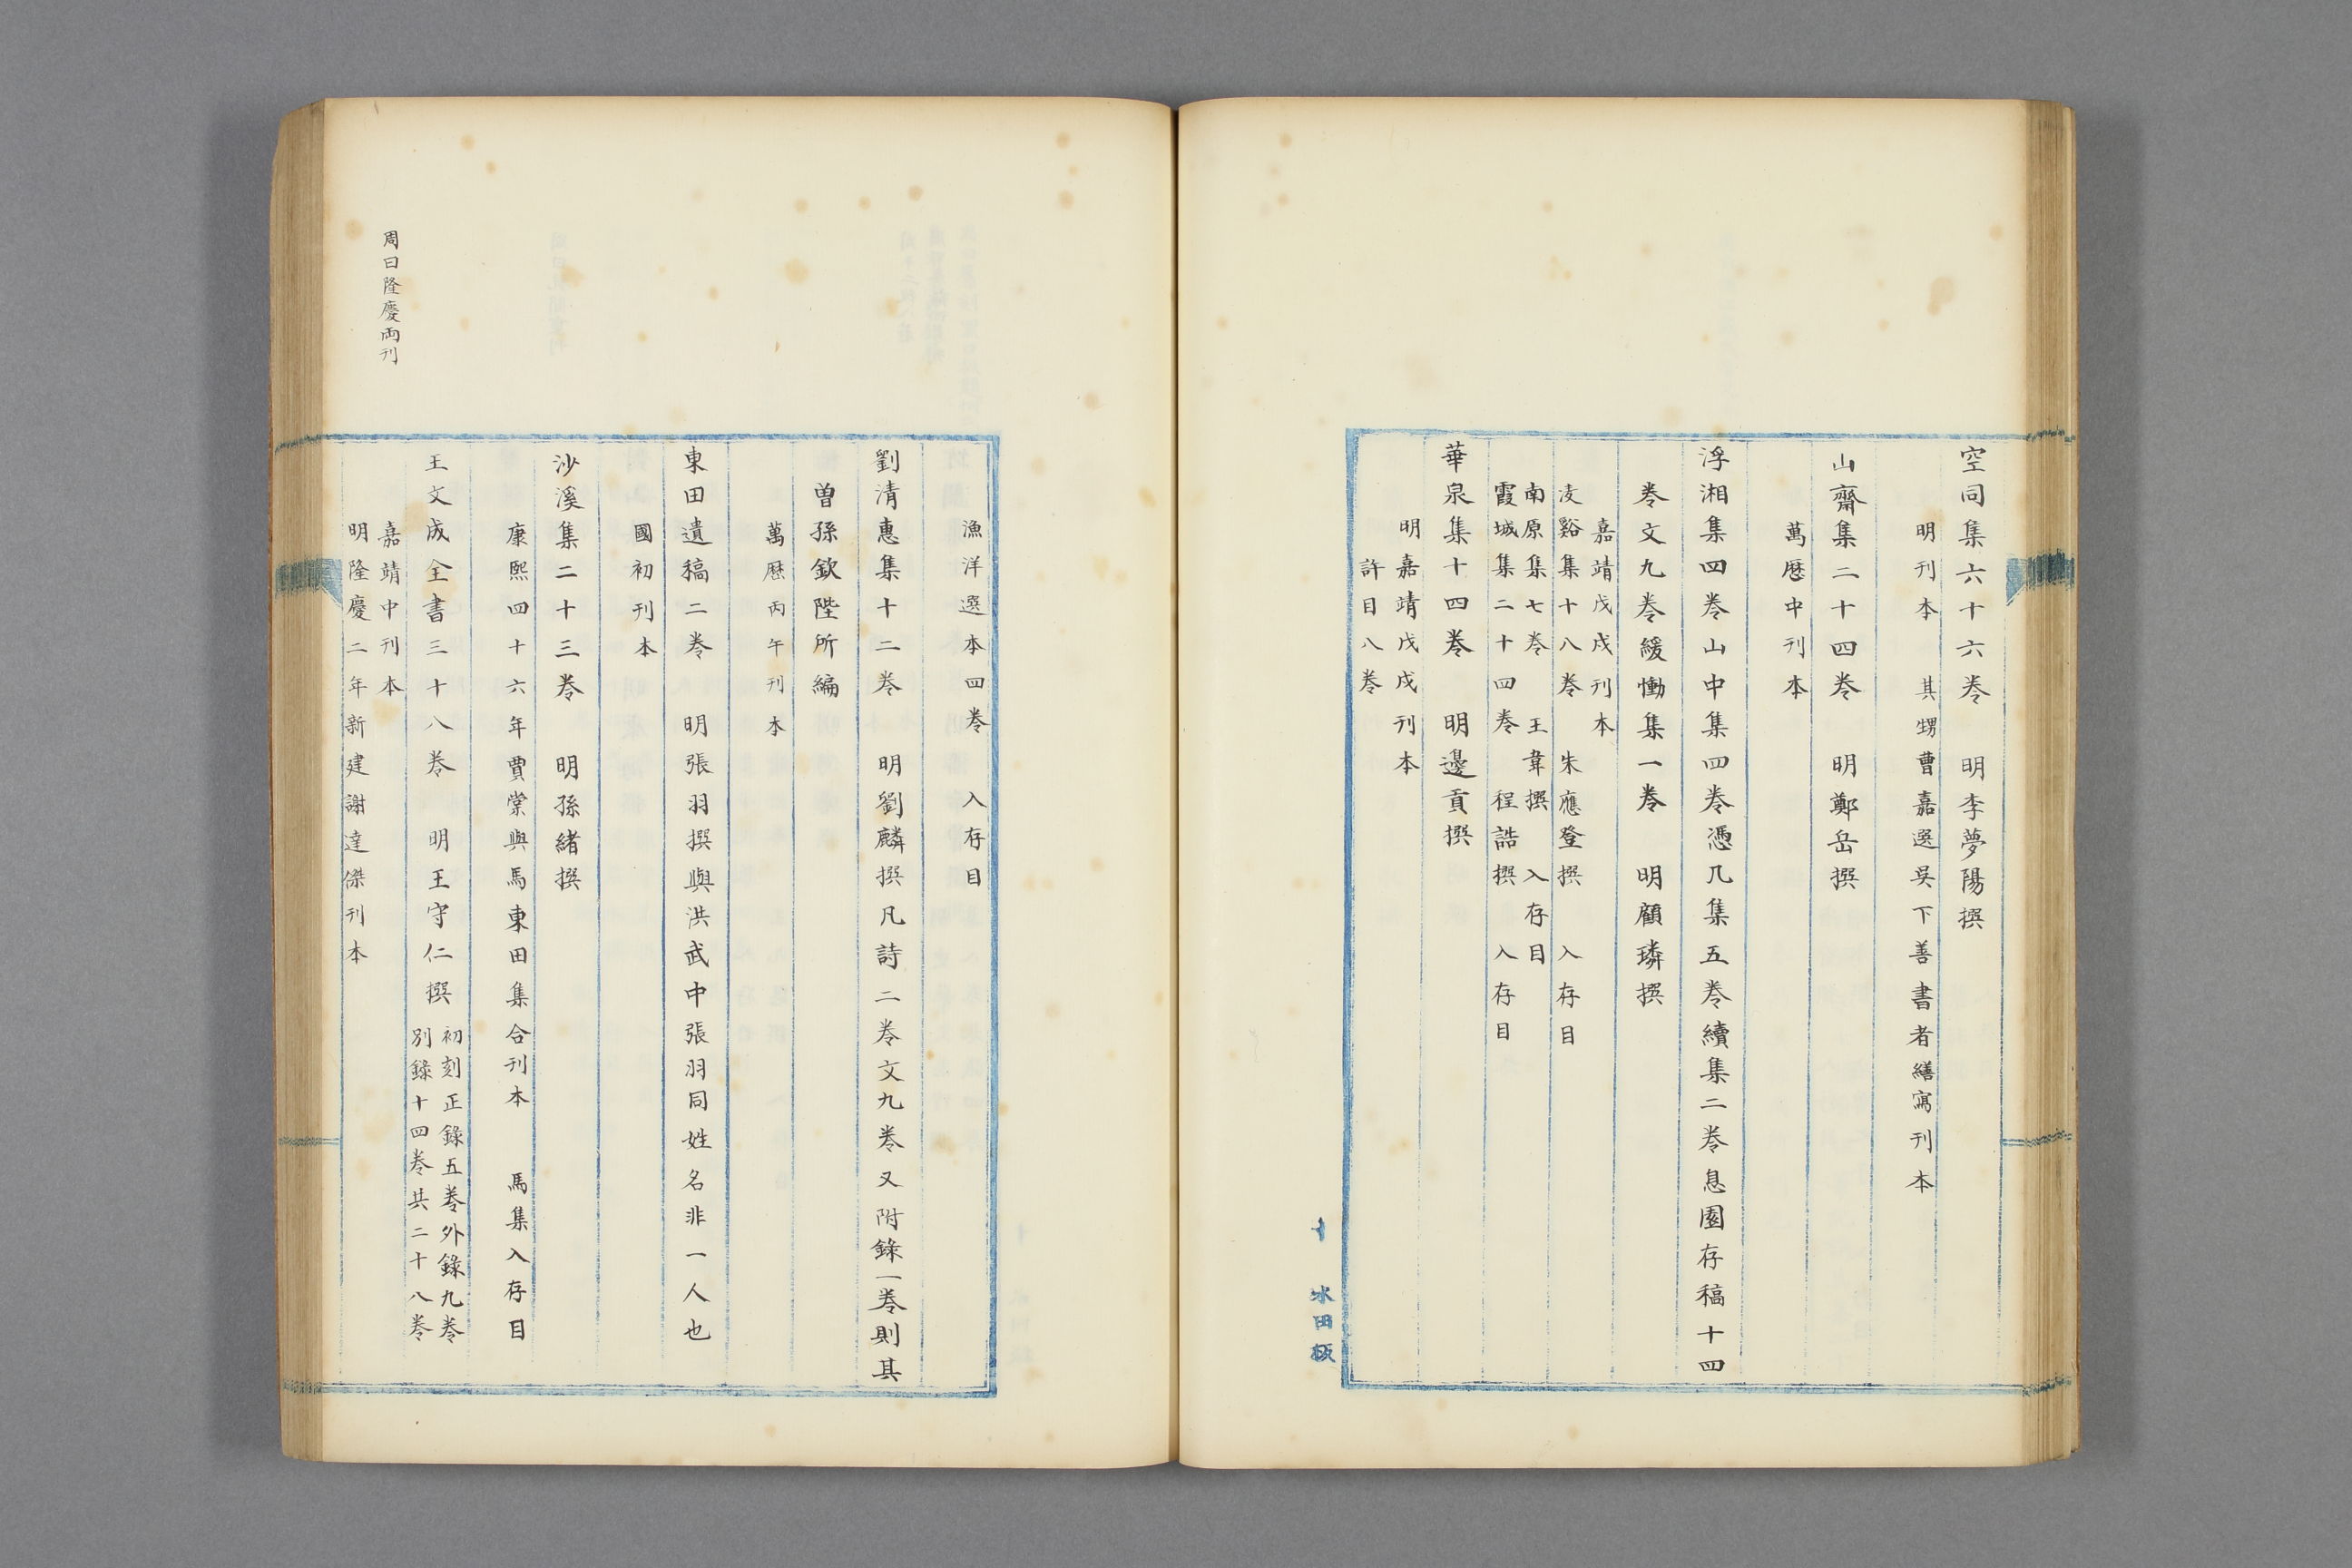 空同集六十六卷　明李夢陽撰
明刊本　其甥曹嘉選吳下善書者繕寫刊本
山齋集二十四卷　明鄭岳撰
萬曆中刊本
浮湘集四卷山中集四卷憑几集五卷續集二卷息園存稿十四
卷文九卷緩慟集一卷　明顧璘撰
嘉靖戊戌刊本
凌谿集十八卷　朱應登撰　入存目
南原集七卷　王韋撰　入存目
霞城集二十四卷　程誥撰　入存目
華泉集十四卷　明邊貢撰
明嘉靖戊戌刊本
許目八卷
氷田板
漁洋選本四卷　入存目
劉清惠集十二卷　明劉麟撰凡詩二卷文九卷又附錄一卷則其
曾孫欽陛所編
萬曆丙午刊本
東田遺稿二卷　明張羽撰與洪武中張羽同姓名非一人也
國初刊本
沙溪集二十三卷　明孫緒撰
康熙四十六年賈棠與馬東田集合刊本　馬集入存目
王文成全書三十八卷　明王守仁撰
初刻正錄五卷外錄九卷
別錄十四卷共二十八卷
嘉靖中刊本
明隆慶二年新建謝達傑刊本
周曰隆慶両刊